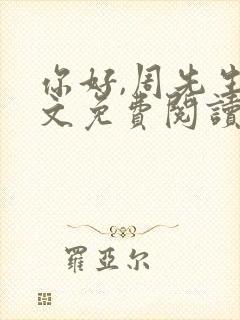 你好,周先生
文免費閱讀
羅亞尔